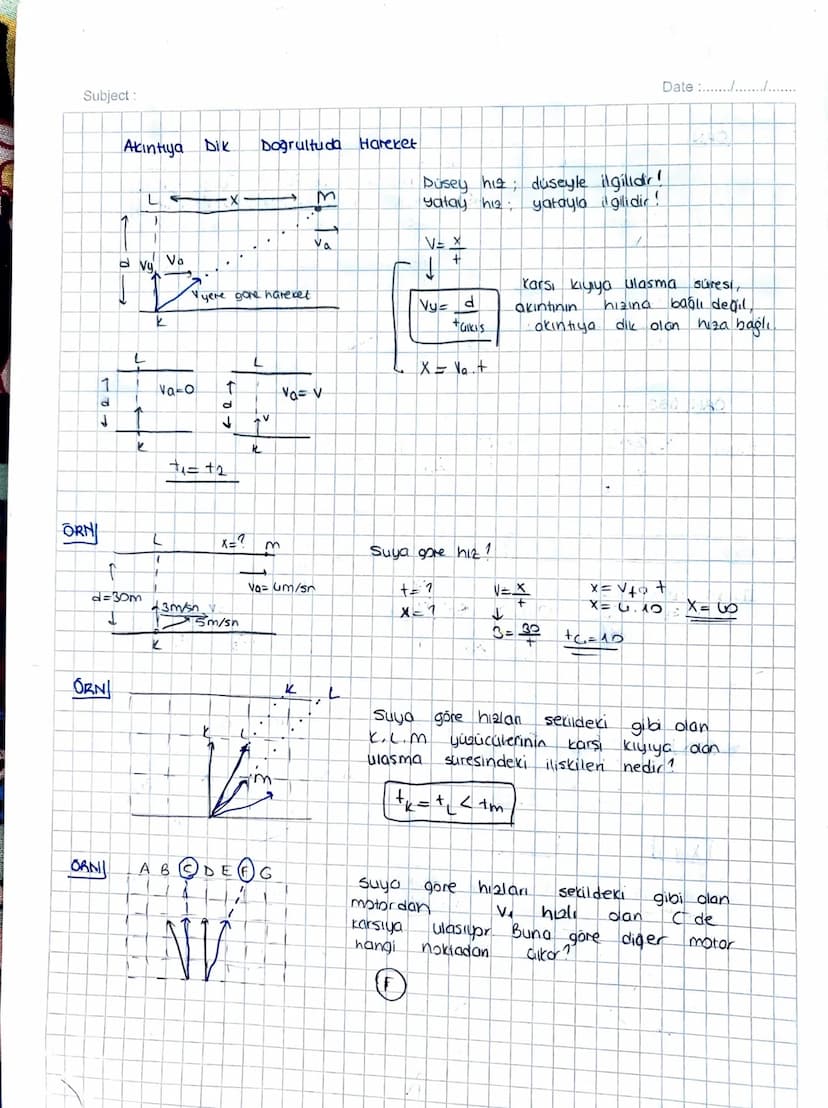 Subject :
Date :......./......./.......
Akıntıya Dik Doğrultuda Hareket
L x m
Va
d Vy Va
Vyere göre hareket
K
Düşey hız ; düşeyle ilgilidir!
yatay hız ; yatayla ilgilidir!
V= x/t
Vy= d/tçıkış
X = Va.t
Karşı kıyıya ulaşma süresi,
akıntının hızına bağlı değil,
akıntıya dik olan hıza bağlı.
L L
d Va=0 d Va= V
V
K K
t1= t2
ÖRN
L x=? m
Va= 4m/sn
d=30m
3m/sn
5m/sn
K
Suya göre hız!
t=?
x=?
V= x/t
3= 30/t
tç=10
X= 4.10 X= 40
ÖRN
K L
K L
m
Suya göre hızları şekildeki gibi olan
K.L.M yüzücülerinin karşı kıyıya olan
ulaşma süresindeki ilişkileri nedir?
tK = tL < tm
ÖRN
A B C D E F G
Suya göre hızları şekildeki gibi olan
motordan V1 hızlı olan C de
karşıya ulaşıyor. Buna göre diğer motor
hangi noktadan çıkar?
F